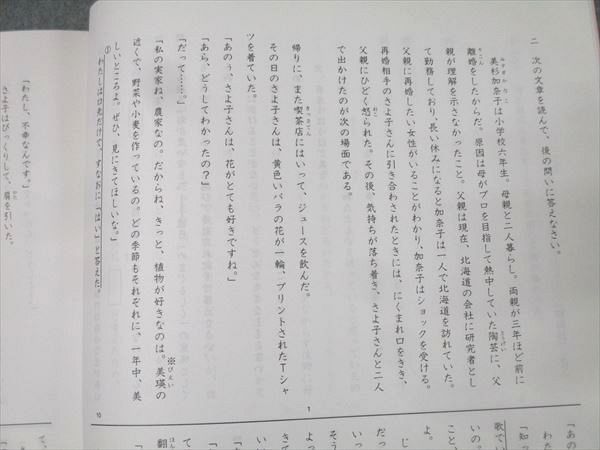 二　次の文章を読んで、後の問いに答えなさい。
美杉加奈子は小学校六年生。母親と二人暮らし。両親が三年ほど前に
離婚をしたからだ。原因は母がプロを目指して熱中していた陶芸に、父
親が理解を示さなかったこと。父親は現在、北海道の会社に研究者とし
て勤務しており、長い休みになると加奈子は一人で北海道を訪れていた。
父親に再婚したい女性がいることがわかり、加奈子はショックを受ける。
再婚相手のさよ子さんに引き合わされたときには、にくまれ口をきき、
父親にひどく怒られた。その後、気持ちが落ち着き、さよ子さんと二人
で出かけたのが次の場面である。
帰りに、また喫茶店にはいって、ジュースを飲んだ。
その日のさよ子さんは、黄色いバラの花が一輪、プリントされたTシャ
ツを着ていた。
「あのぅ、さよ子さんは、花がとても好きですね。」
「あら、どうしてわかったの？」
「だって……。」
「私の実家ね、農家なの。だからね、きっと、植物が好きなのは。※美瑛の
近くで、野菜や小麦を作っているの。どの季節もそれぞれに、一年中、美
しいところよ。ぜひ、見にきてほしいな。」
①わたしは口先だけで、すなおに「はい」と答えた。
「わたし、不幸なんです。」
さよ子はびっくりして、肩を引いた。
1
10